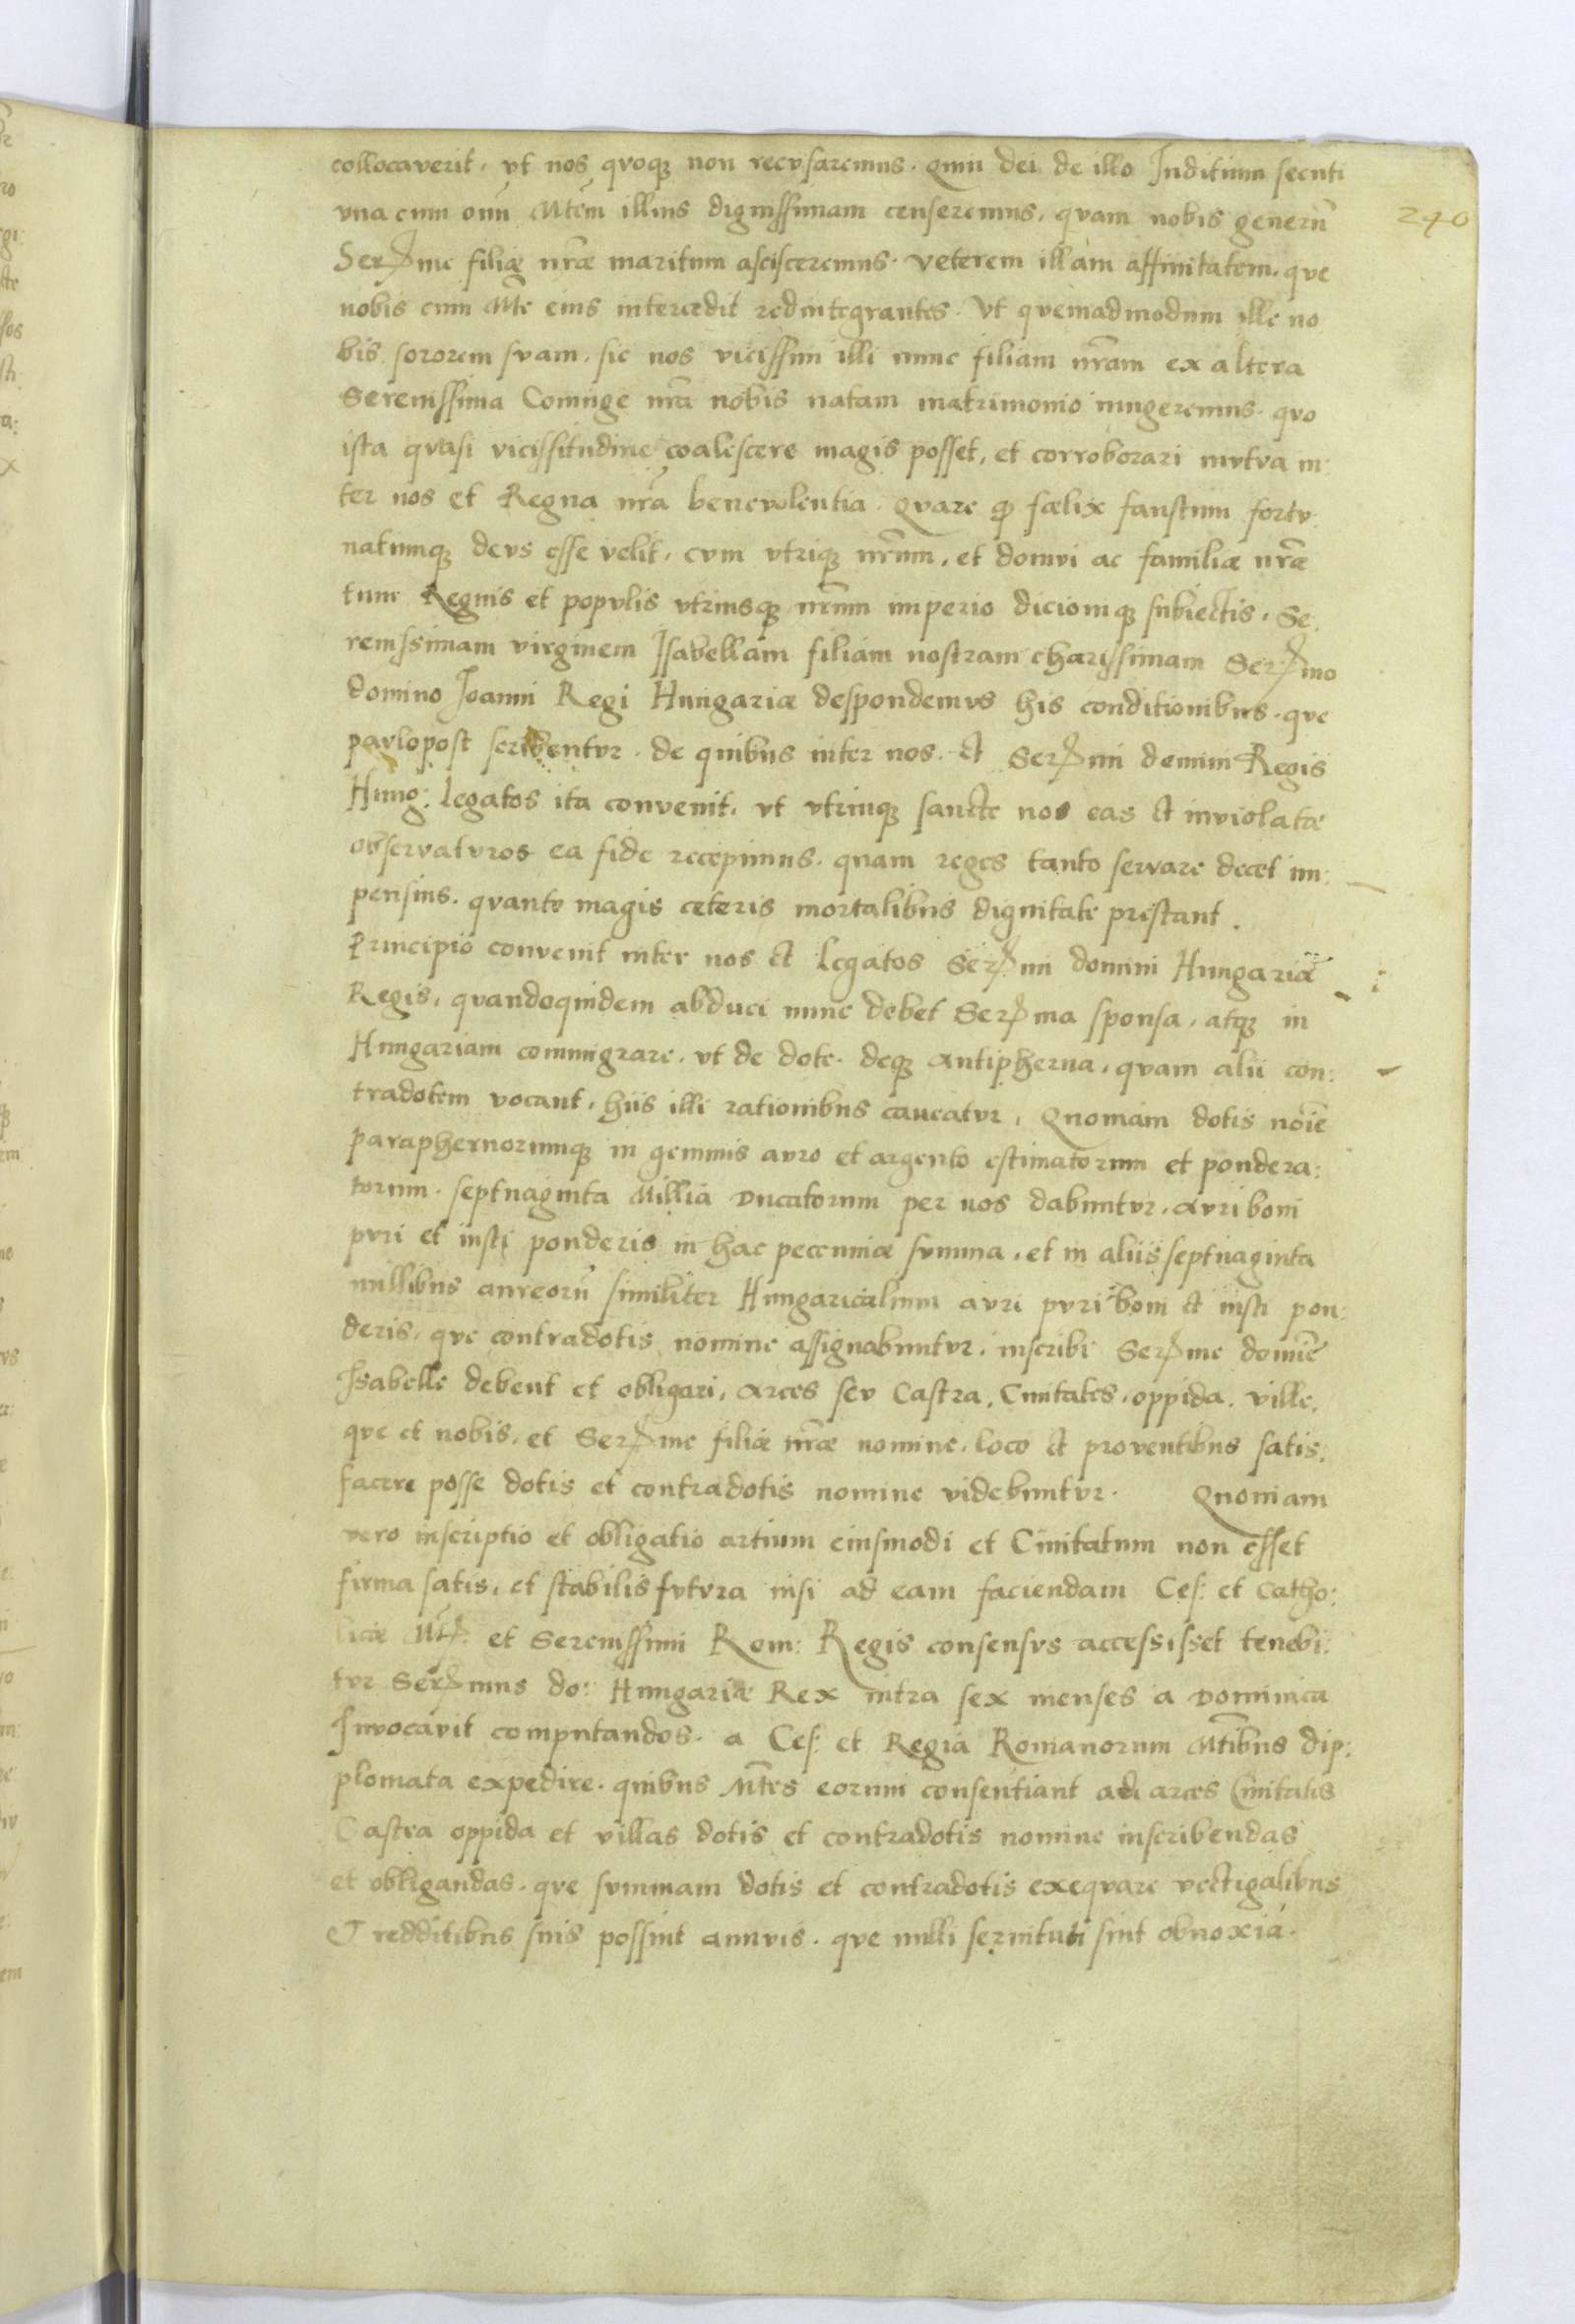 collocaverit, vt nos qvoqꝫ non recvsaremus. Quin dei de illo Inditium secuti
vna cum om̄ Mtem̄ illius dignissimam censeremus, qvam nobis generū
Ser̄me filiæ nr̄æ maritum ascisceremus. veterem illam affinitatem, qve
nobis cum Mte eius intercedit redintegrantes. Vt qvemadmodum ille no
bis sororem svam, sic nos vicissim illi nunc filiam nr̄am ex altera
Serenissima Coniuge nr̄a nobis natam matrimonio iungeremus. qvo
ista qvasi vicissitudine coalescere magis posset, et corroborari mvtva in:
ter nos et Regna nr̄a benevolentia. Qvare qꝫ fælix faustum fortv
natumqꝫ devs esse velit, cvm vtriqꝫ nr̄um, et domvi ac familiæ nr̄æ
tum Regnis et popvlis vtriusqꝫ nr̄um imperio dicioniqꝫ subiectis. Se:
renissimam virginem Isabellam filiam nostram charissimam Ser̄mo
domino Joanni Regi Hungariæ despondemvs his conditionibus. qve
pavlopost scribentvr. de quibus inter nos. et Ser̄mi domini Regis
Hung: legatos ita convenit, vt vtrinqꝫ sancte nos eas et inviolatæ
observatvros ea fide recepimus. quam reges tanto servare decet im:
pensius. qvanto magis ceteris mortalibus dignitate prestant.
Principio convenit inter nos et legatos Ser̄mi domini Hungariæ
Regis, qvandoquidem abduci nunc debet Ser̄ma sponsa, atqꝫ in
Hungariam commigrare, vt de dote. deqꝫ Antipherna, qvam alii con:
tradotem vocant, hiis illi rationibus caveatvr, Quoniam dotis noi͞e
paraphernorumqꝫ in gemmis avro et argento estimatorum et pondera:
torum. septuaginta Millia Ducatorum per nos dabuntvr. Avri boni
pvri et iusti ponderis in hac pecuniæ svmma, et in aliis septuaginta
millibus aureorū similiter Hungaricalium avri pvri boni et iusti pon:
deris, qve contradotis nomine assignabuntvr. inscribi Ser̄me domīe
Isabelle debent et obligari, Arces sev Castra, Ciuitates, oppida, ville,
qve et nobis, et Ser̄me filiæ nr̄æ nomine, loco et proventibus satis:
facere posse dotis et contradotis nomine videbuntvr. Quoniam
vero inscriptio et obligatio artium eiusmodi et Ciuitatum non esset
firma satis, et stabilis fvtvra nisi ad eam faciendam Ces: et Catho:
licæ Mtꝭ et Serenissimi Rom: Regis consensvs accessisset tenebi:
tvr Ser̄mus do: Hungariæ Rex intra sex menses a Dominica
Invocavit computandos. a Ces: et Regia Romanorum Mtībus dip:
plomata expedire. quibus Mt̄es eorum consentiant ad arces Ciuitates
Castra oppida et villas dotis et contradotis nomine inscribendas
et obligandas. qve svmmam dotis et contradotis exeqvare vectigalibus
Et redditibus suis possint annvis. qve nulli seruituti sint obnoxia.
240